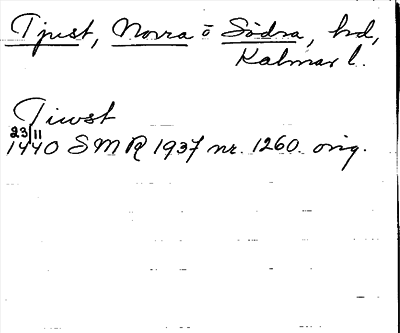 Tjust, Norra o Södra, hd,
Kalmar l.
Tiwst
23/11
1440 SMR 1937 nr. 1260. orig.